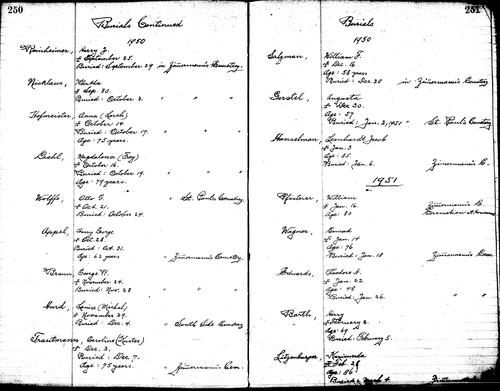 250
Burials Continued
1950
Reinheimer, Harry J.
† September 25.
Buried: September 29 in Zimmerman's Cemetery.
Nicklaus, Martha
† Sep. 30.
Buried: October 3. " " "
Hofmeister, Anna (Lorch)
† October 14.
Buried: October 17. " " "
Age: 75 years.
Diehl, Magdalena (Frey)
† October 16.
Buried: October 19. " " "
Age: 79 years.
Wolffe, Otto G. " St. Paul's Cemetery
† Oct. 21.
Buried: October 24.
Appel, Harry George
† Oct. 28.
Buried: Oct. 31.
Age: 62 years " Zimmerman's Cemetery
Braun, George W.
† November 24.
Buried: Nov. 28 " " "
Hurd, Louise (Michel)
† November 29.
Buried: Dec. 4. " South Side Cemetery
Trautmann, Caroline (Küster)
† Dec. 3.
Buried: Dec. 7.
Age: 75 years. " Zimmerman's Cem.
251
Burials
1950
Salzman, William F.
† Dec. 16
Age: 58 years
Buried: Dec 20 in Zimmerman's Cemetery
Gerstel, Augusta
† Dec 30.
Age: 57
Buried: Jan. 2, 1951 " St. Paul's Cemetery
Honselman, Leonhardt Jacob
† Jan. 3
Age: 85
Buried: Jan. 6. Zimmerman's C.
1951
Pfisterer, William
† Jan. 16. Zimmerman's C.
Age: 80 Cremation
Wagner, Conrad
† Jan. 14
Age: 76
Buried: Jan. 18 Zimmerman's
Edwards, Theodore A.
† Jan. 22
Age: 48
Buried: Jan. 26. " "
Barth, Harry
† February 2.
Age: 69
Buried: February 5.
Litzenberger, 
† Feb. 28
Age: 86
Buried: March 4